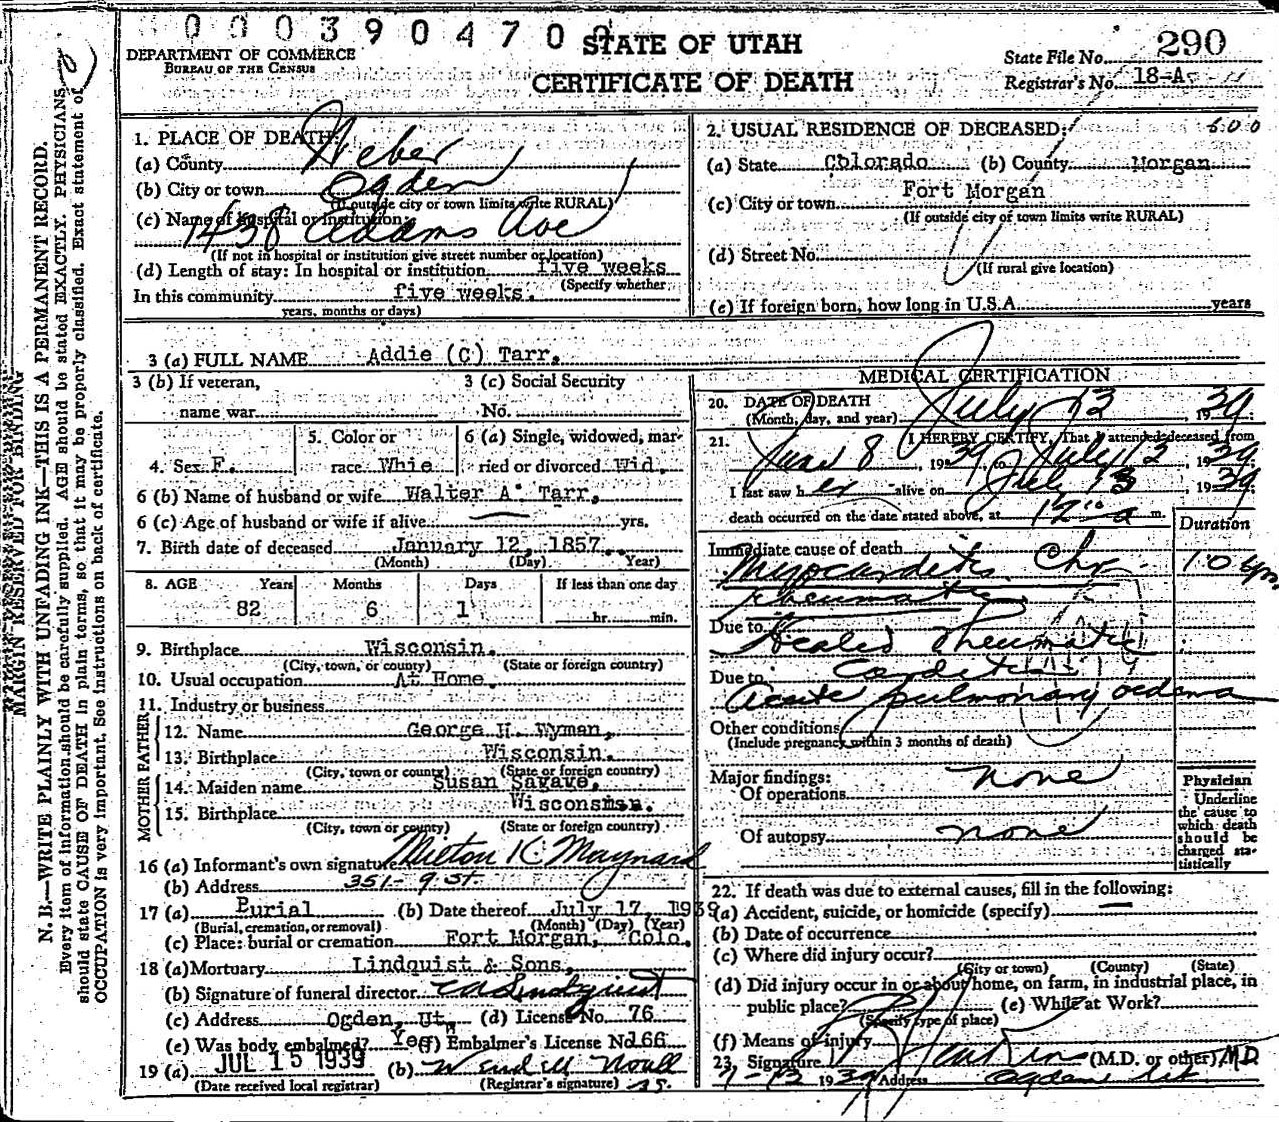 0003904700
STATE OF UTAH
CERTIFICATE OF DEATH
DEPARTMENT OF COMMERCE
BUREAU OF THE CENSUS
State File No. 290
Registrar's No. 18-A
MARGIN RESERVED FOR BINDING
N. B.—WRITE PLAINLY WITH UNFADING INK—THIS IS A PERMANENT RECORD.
Every item of information should be carefully supplied. AGE should be stated EXACTLY. PHYSICIANS
should state CAUSE OF DEATH in plain terms, so that it may be properly classified. Exact statement of
OCCUPATION is very important. See instructions on back of certificate.
1. PLACE OF DEATH:
(a) County Weber
(b) City or town Ogden
(If outside city or town limits write RURAL)
(c) Name of hospital or institution:
1438 Adams Ave
(If not in hospital or institution give street number or location)
(d) Length of stay: In hospital or institution five weeks
(Specify whether
In this community five weeks.
years, months or days)
2. USUAL RESIDENCE OF DECEASED: 600
(a) State Colorado (b) County Morgan
(c) City or town Fort Morgan
(If outside city of town limits write RURAL)
(d) Street No.
(If rural give location)
(e) If foreign born, how long in U.S.A. years
3 (a) FULL NAME Addie (C) Tarr.
3 (b) If veteran,
name war
3 (c) Social Security
No.
4. Sex F.
5. Color or
race Whie
6 (a) Single, widowed, mar-
ried or divorced Wid.
6 (b) Name of husband or wife Walter A. Tarr.
6 (c) Age of husband or wife if alive yrs.
7. Birth date of deceased January 12, 1857.
(Month) (Day) Year)
8. AGE Years Months Days If less than one day
82 6 1 hr. min.
9. Birthplace Wisconsin.
(City, town, or county) (State or foreign country)
10. Usual occupation At Home.
11. Industry or business
FATHER
12. Name George H. Wyman,
13. Birthplace Wisconsin.
(City, town or county) (State or foreign country)
MOTHER
14. Maiden name Susan Savave.
15. Birthplace Wisconsinn.
(City, town or county) (State or foreign country)
16 (a) Informant's own signature Milton K Maynard
(b) Address 351- 9 St.
17 (a) Burial (b) Date thereof July 17, 1939
(Burial, cremation, or removal) (Month) (Day) (Year)
(c) Place: burial or cremation Fort Morgan, Colo.
18 (a) Mortuary Lindquist & Sons,
(b) Signature of funeral director
(c) Address Ogden, Ut. (d) License No. 76
(e) Was body embalmed? Yes (f) Embalmer's License No 166
19 (a) JUL 15 1939 (b) Wendell Noall
(Date received local registrar) (Registrar's signature)
MEDICAL CERTIFICATION
20. DATE OF DEATH
(Month, day, and year) July 13, 1939
21. I HEREBY CERTIFY, That I attended deceased from
June 8, 1939 to July 13, 1939
I last saw her alive on July 13, 1939
death occurred on the date stated above, at 12 10 a m.
Duration
Immediate cause of death
Myocarditis Chr. 10 yrs
rheumatic
Due to Healed Rheumatic
Carditis
Due to
Acute pulmonary oedema
Other conditions
(Include pregnancy within 3 months of death)
Major findings:
Of operations none
Of autopsy none
Physician
Underline
the cause to
which death
should be
charged sta-
tistically
22. If death was due to external causes, fill in the following:
(a) Accident, suicide, or homicide (specify)
(b) Date of occurrence
(c) Where did injury occur?
(City or town) (County) (State)
(d) Did injury occur in or about home, on farm, in industrial place, in
public place? (e) While at Work?
(Specify type of place)
(f) Means of injury
23. Signature (M.D. or other) M.D.
7-13 1939 Address Ogden Ut.